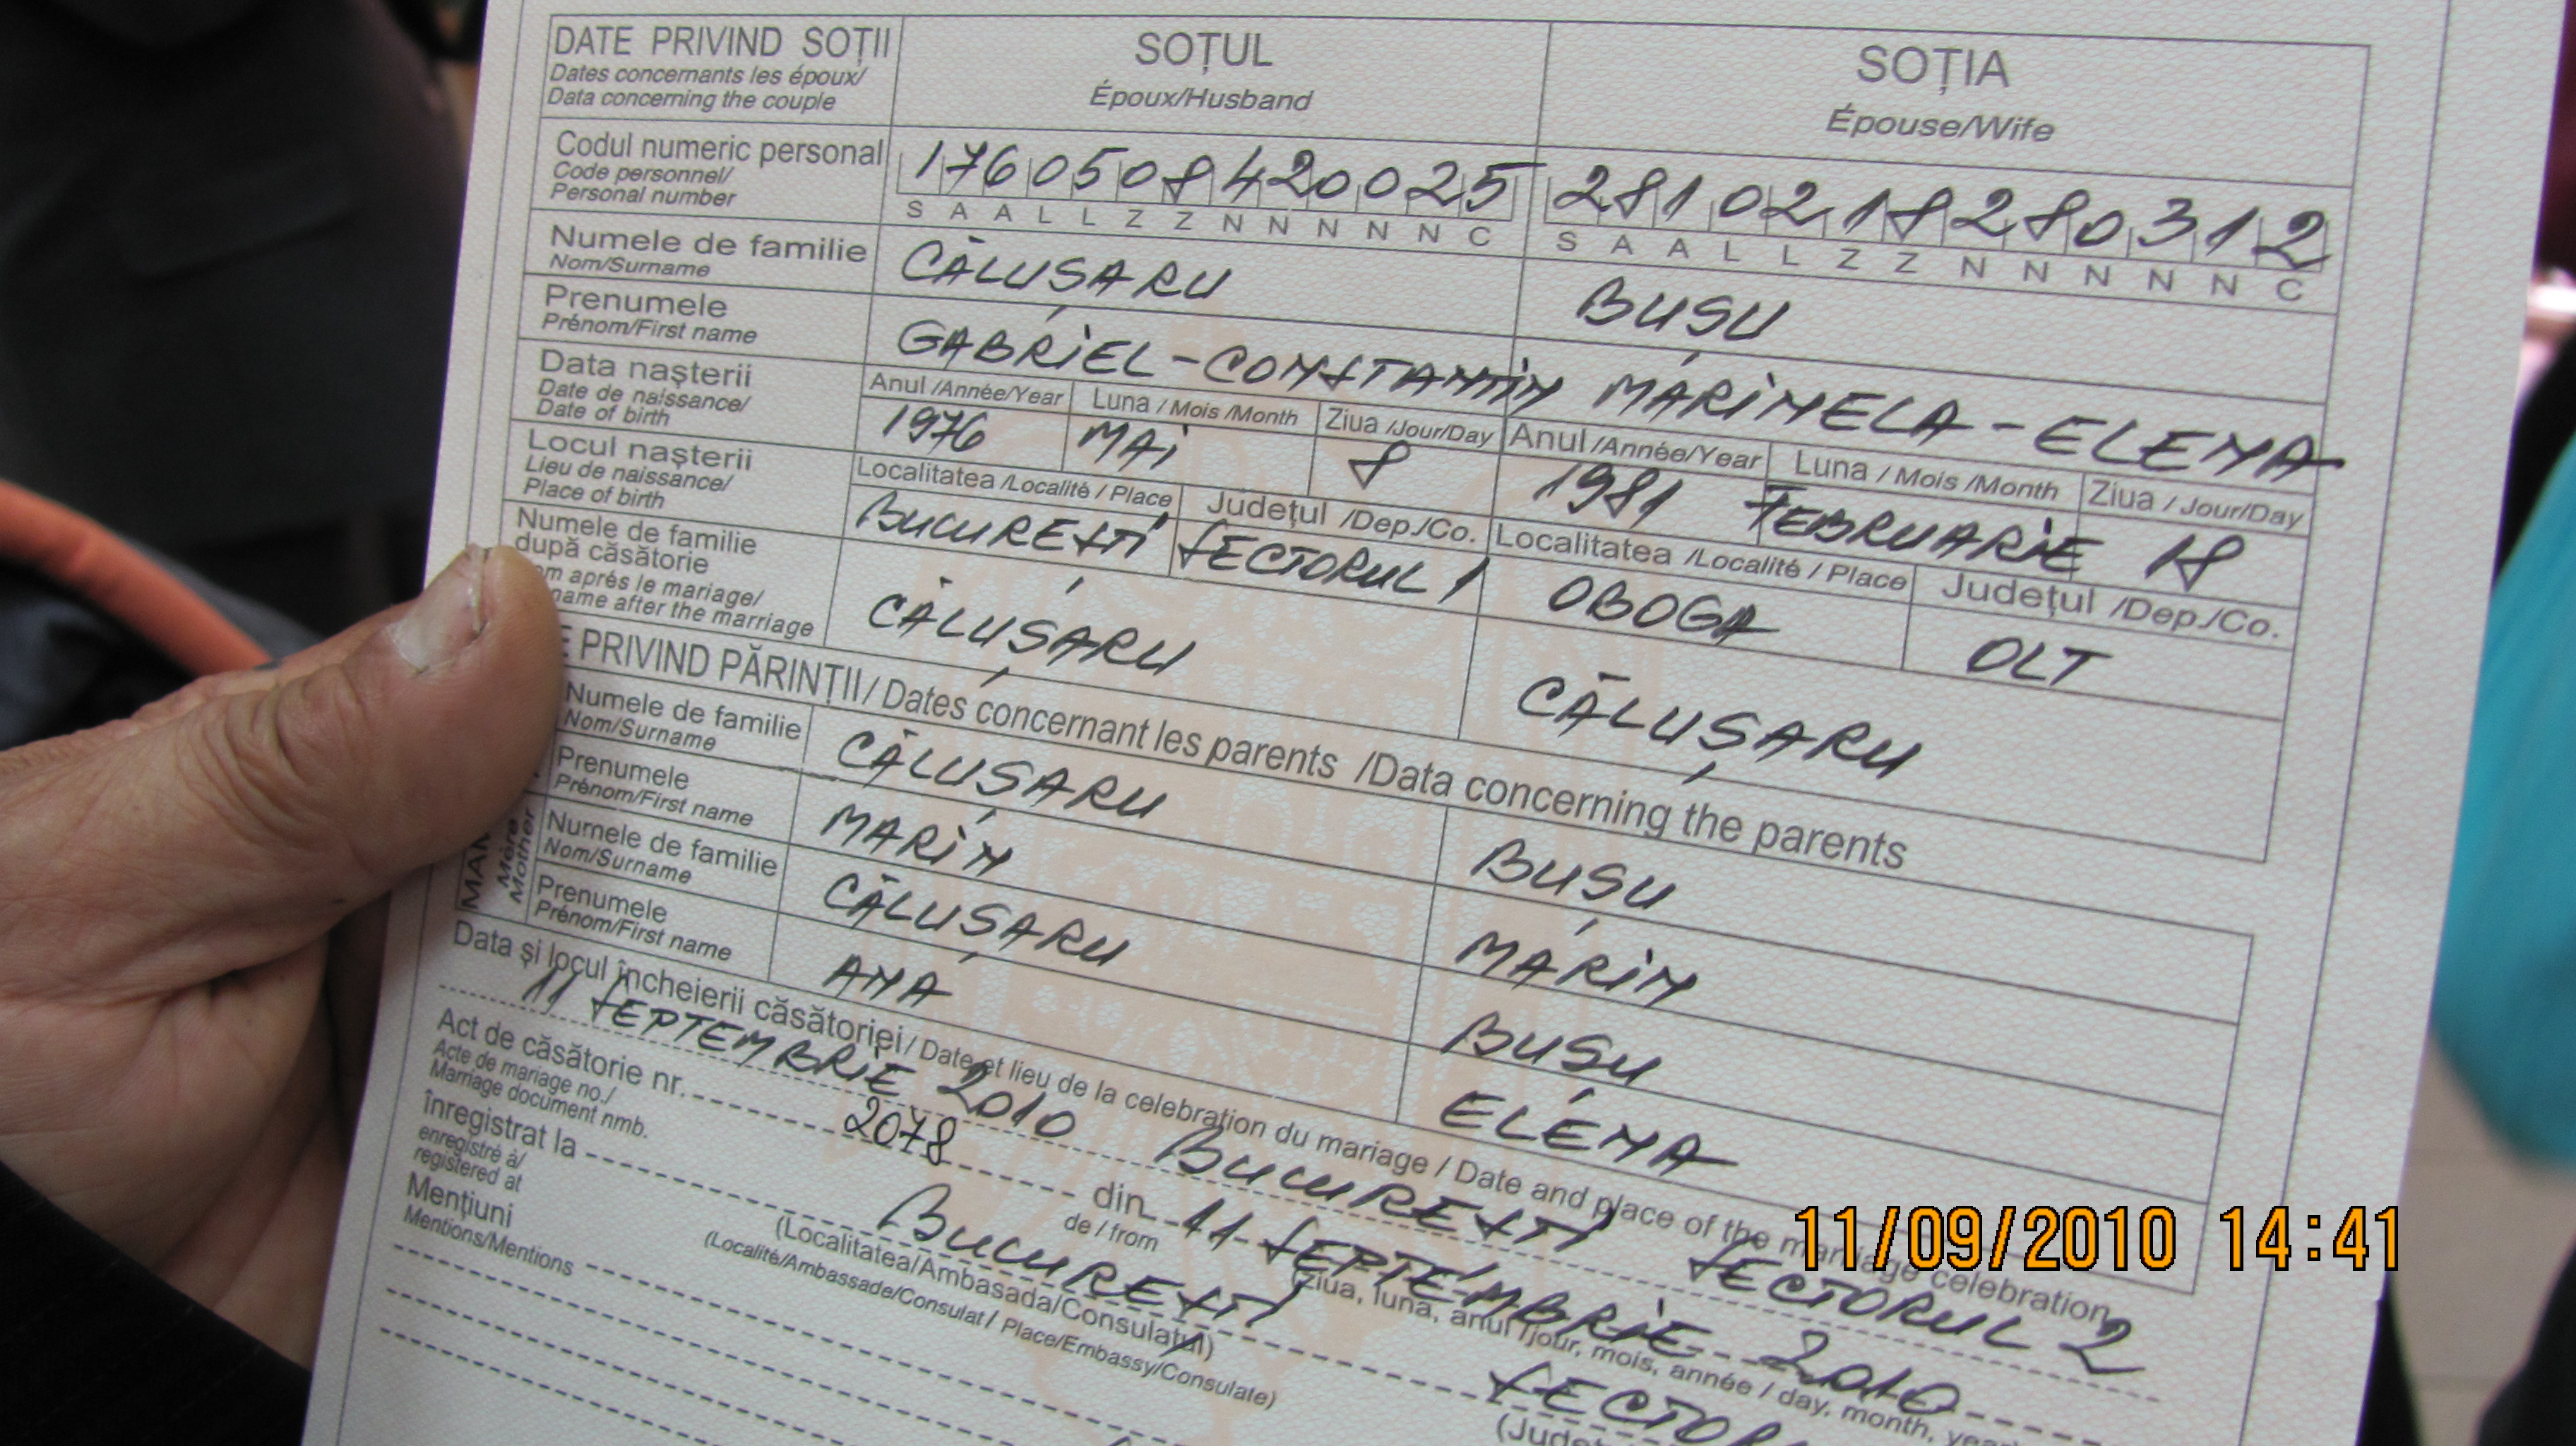 DATE PRIVIND SOȚII SOȚUL SOȚIA
Dates concernants les époux/ Époux/Husband Épouse/Wife
Data concerning the couple
Codul numeric personal 1760508420025 2810218280312
Code personnel/
Personal number
S A A L L Z Z N N N N N C S A A L L Z Z N N N N N C
Numele de familie CĂLUȘARU BUȘU
Nom/Surname
Prenumele GABRIEL-CONSTANTIN MARINELA-ELENA
Prénom/First name
Data nașterii Anul /Année/Year Luna / Mois /Month Ziua /Jour/Day Anul /Année/Year Luna / Mois /Month Ziua / Jour/Day
Date de naissance/
Date of birth 1976 MAI 8 1981 FEBRUARIE 18
Locul nașterii Localitatea /Localité / Place Județul /Dep./Co. Localitatea /Localité / Place Județul /Dep./Co.
Lieu de naissance/
Place of birth BUCUREȘTI SECTORUL 1 OBOGA OLT
Numele de familie
după căsătorie CĂLUȘARU CĂLUȘARU
om après le mariage/
name after the marriage
E PRIVIND PĂRINȚII / Dates concernant les parents /Data concerning the parents
Numele de familie CĂLUȘARU BUȘU
Nom/Surname
Prenumele MARIN MARIN
Prénom/First name
MAM
Mère
Mother
Numele de familie CĂLUȘARU BUȘU
Nom/Surname
Prenumele ANA ELENA
Prénom/First name
Data și locul încheierii căsătoriei / Date et lieu de la celebration du mariage / Date and place of the marriage celebration
11 SEPTEMBRIE 2010 BUCUREȘTI SECTORUL 2
Act de căsătorie nr. 2078 din 11 SEPTEMBRIE 2010
Acte de mariage no./ de / from (Ziua, luna, anul /jour, mois, année / day, month, year
Marriage document nmb.
înregistrat la BUCUREȘTI SECTOR
enregistré à/ (Localitatea/Ambasada/Consulatul) (Jude
registered at (Localité/Ambassade/Consulat / Place/Embassy/Consulate)
Mențiuni
Mentions/Mentions
11/09/2010 14:41